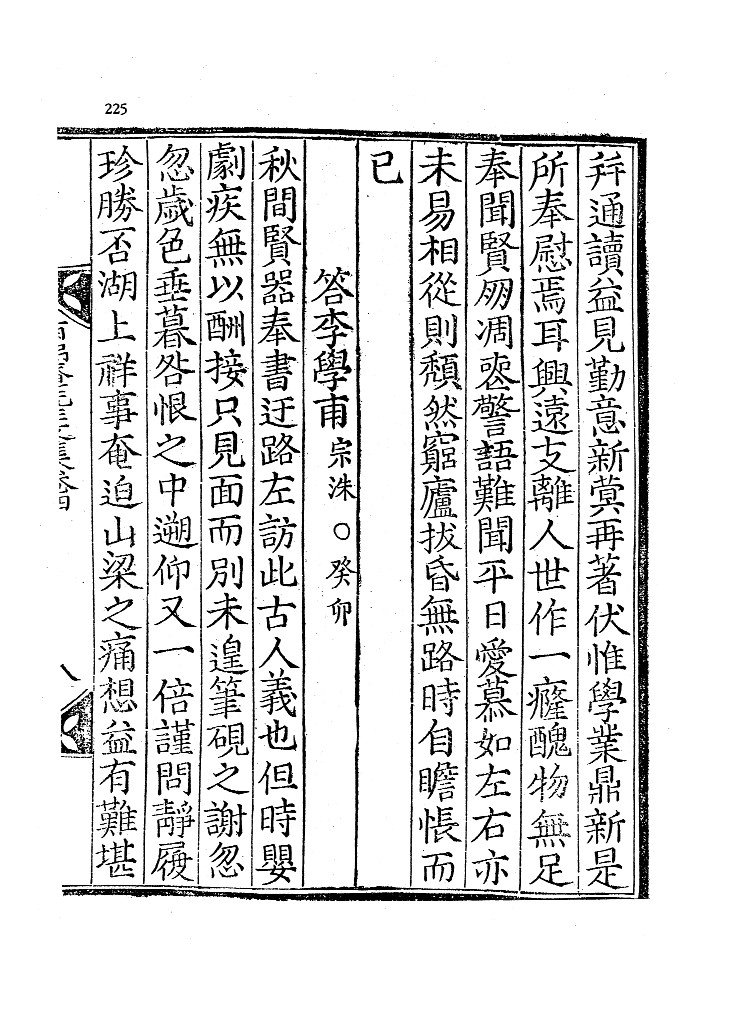 225
幷通讀益見勤意新蓂再著伏惟學業鼎新是
所奉慰焉耳興遠支離人世作一癃醜物無足
奉聞賢朋凋喪警語難聞平日愛慕如左右亦
未易相從則頹然窮廬拔昏無路時自瞻悵而
已
答李學甫宗洙○癸卯
秋間賢器奉書迂路左訪此古人義也但時嬰
劇疾無以酬接只見面而別未遑筆硯之謝忽
忽歲色垂暮咎恨之中遡仰又一倍謹問靜履
珍勝否湖上祥事奄迫山梁之痛想益有難堪
八